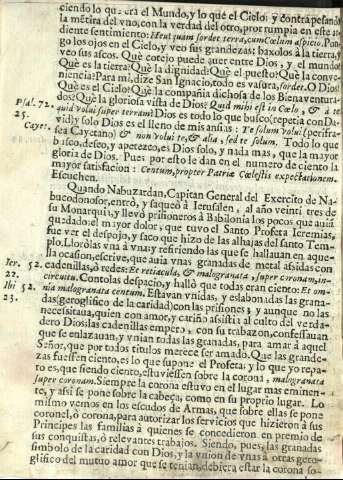 ciendo lo que era el Mundo, y lo que el Cielo; y contrapesando
la mẽtira del vno, con la verdad del otro, prorrumpia en este ar-
diente sentimiento: Heu! quam sordet terra, cum Cœlum aspicio. Pon-
go los ojos en el Cielo, y veo sus grandezas; baxolos à la tierra, y
veo sus ascos. Què cotejo puede auer entre Dios, y el mundo?
Què es la tierra? Què la dignidad? Què el puesto? Què la conve-
niencia? Para mi, dize San Ignacio, todo es vasura, sordet. O Dios!
Què es el Cielo? Què la compañia dichosa de los Bienaventura-
dos? Què la gloriosa vista de Dios? Quid mihi est in Cœlo, & à te
Psal. 72.
quid volui super terram? Dios es todo lo que busco (repetia con Da-
25.
vid) y solo Dios es el lleno de mis ansias: Te solum volui (perifra-
sea Cayetano) & non volui te, & alia, sed te solum. Todo lo que
Cayet.
busco, deseo, y apetezco, es Dios solo, y nada mas, que la mayor
gloria de Dios. Pues por esto le dan en el numero de ciento la
mayor satisfacion: Centum, propter Patriæ Cœlestis expectationem.
Escuchen.
Quando Nabuzardan, Capitan General del Exercito de Na-
bucodonosor, entrò, y saqueò à Jerusalen, al año veinti tres de
su Monarquia, y llevò prisioneros à Babilonia los pocos que auia
quedado: el mayor dolor, que tuvo el Santo Profeta Ieremias,
fue ver el despojo, y saco que hizo de las alhajas del santo Tem-
plo. Lloròlas vna à vna, y refiriendo las que se hallauan en aque-
lla ocasion, escrive, que auia vnas granadas de metal asidas con
cadenillas, ò redes: Et retiacula, & malogranata, super coronam, in-
Ier. 52.
22.
circuitu. Contòlas despacio, y hallò que todas eran ciento: Et om-
Ibi 52.
nia malogranata centum. Estavan vnidas, y eslabonadas las grana-
23.
das (geroglifico de la caridad) con las prisiones; y aunque no las
necesitaua, quien con amor, y cariño asistia al culto del verda-
dero Dios; las cadenillas empero, con su trabazon, confessauan
que se enlazauan, y vnian todas las granadas, para amar à aquel
Señor, que por todos titulos merece ser amado. Que las grande-
zas fuessen ciento, es lo que supone el Profeta; y lo que yo repa-
ro es, que siendo ciento, estuviessen sobre la corona, malogranata
super coronam. Siempre la corona estuvo en el lugar mas eminen-
te, y asi se pone sobre la cabeça, como en su proprio lugar. Lo
mismo vemos en los escudos de Armas, que sobre ellas se pone
coronel, ò corona, para autorizar los servicios que hizieron à sus
Principes las familias à quienes se concedieron en premio de
sus conquistas, ò relevantes trabajos. Siendo, pues, las granadas
simbolo de la caridad con Dios, y la vnion de vnas à otras gero-
glifico del mutuo amor que se tenian, debiera estar la corona so-